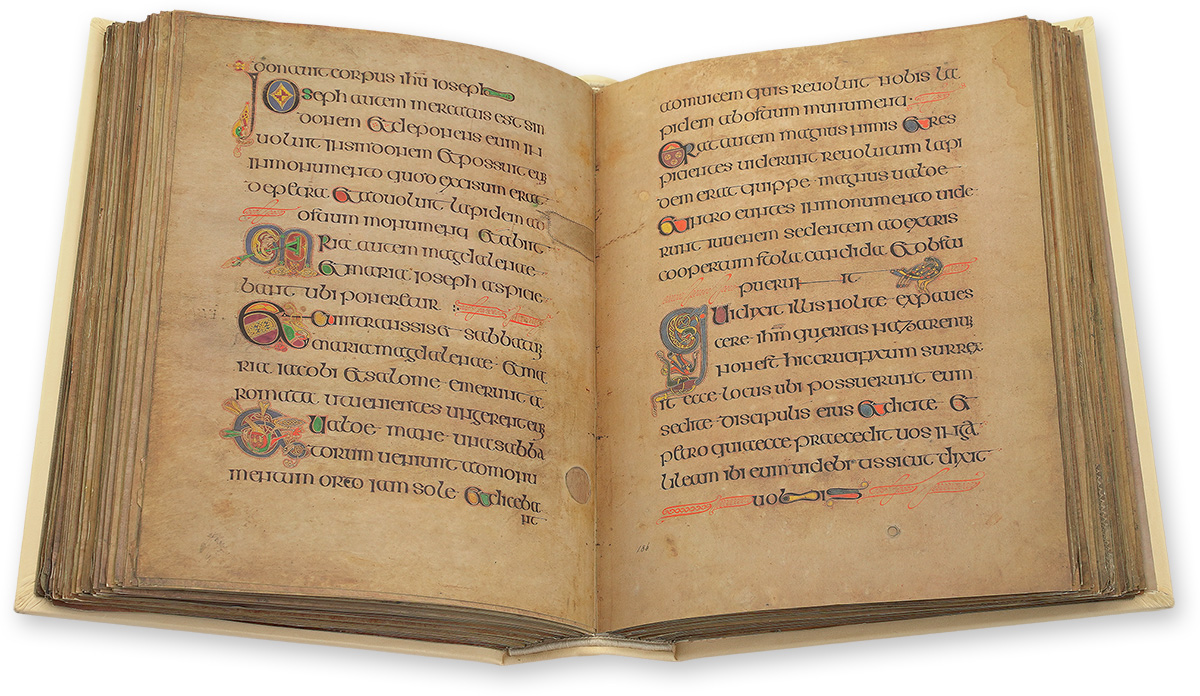 donauit corpus ihu ioseph
Ioseph autem mercatus est sin
donem et deponens eum in
uoluit insindonem et possuit eum
inmonumento quod excisum erat
de petra et aduoluit lapidem ad
ostium monumenti et abiit
Maria autem magdalenae
et maria ioseph aspicie
bant ubi
Et cum transisset sabbatum
maria magdalenae et ma
ria iacobi et salome emerunt a
romata ut uenientes ungerent eum
Et ualde mane una sabba
torum ueniunt admonu
mentum orto iam sole et diceba
nt
adinuicem quis reuoluit nobis la
pidem ab ostium monumenti
Erat autem magnus nimis et res
picientes uiderunt reuolutum lapi
dem erat quippe magnus ualde
et intro euntes inmonumento uide
runt iuuenem sedentem adextris
coopertum stola candida et obstu
puerunt
Qui dixit illis nolite expaues
cere ihm queritis nazarenum
non est hic crucifixum surrex
it ecce locus ubi possuerunt eum
sed ite discipulis eius et dicite et
petro quia ecce praecedit uos in gal
lileam ibi eum uidebitis sicut dixit
uobis
186